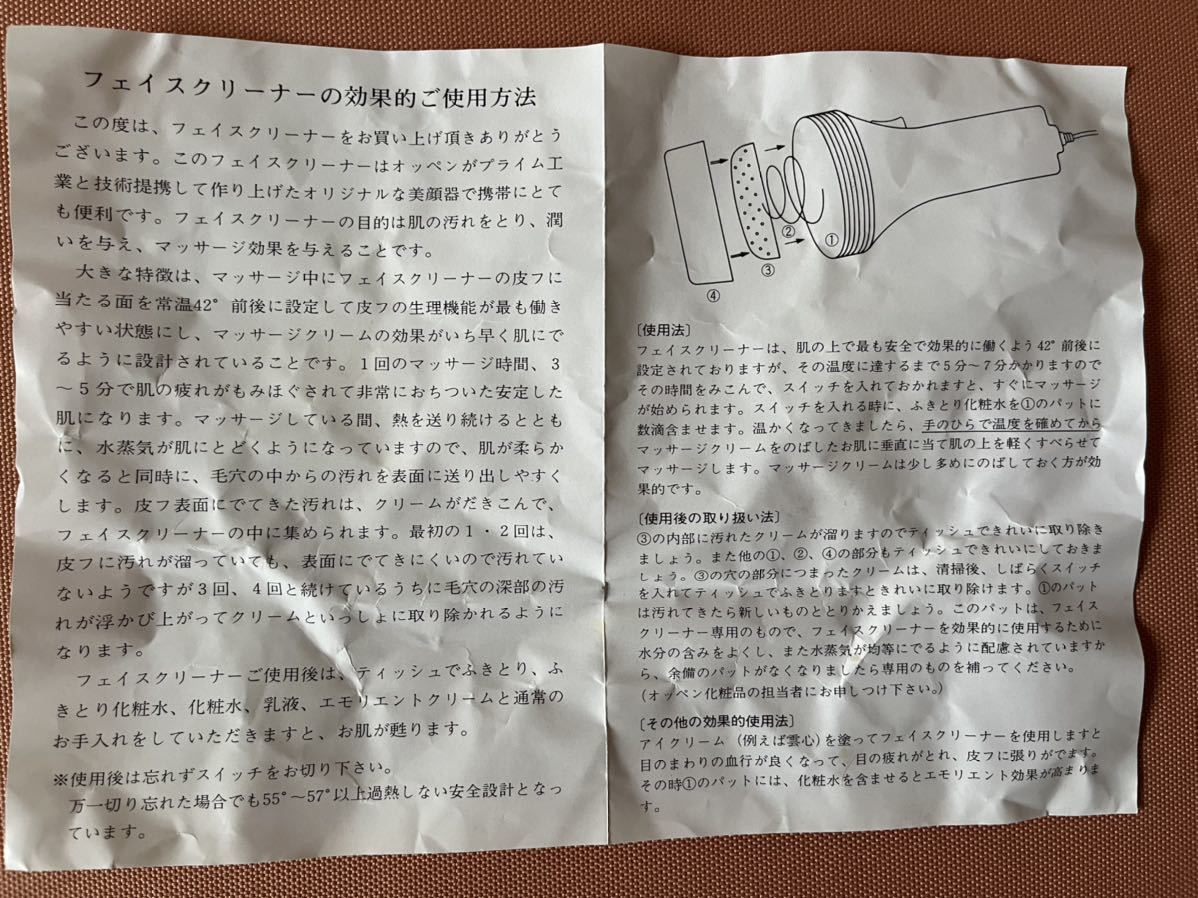 フェイスクリーナーの効果的ご使用方法
この度は、フェイスクリーナーをお買い上げ頂きありがとう
ございます。このフェイスクリーナーはオッペンがプライム工
業と技術提携して作り上げたオリジナルな美顔器で携帯にとて
も便利です。フェイスクリーナーの目的は肌の汚れをとり、潤
いを与え、マッサージ効果を与えることです。
大きな特徴は、マッサージ中にフェイスクリーナーの皮フに
当たる面を常温42°前後に設定して皮フの生理機能が最も働き
やすい状態にし、マッサージクリームの効果がいち早く肌にで
るように設計されていることです。1回のマッサージ時間、3
～5分で肌の疲れがもみほぐされて非常におちついた安定した
肌になります。マッサージしている間、熱を送り続けるととも
に、水蒸気が肌にとどくようになっていますので、肌が柔らか
くなると同時に、毛穴の中からの汚れを表面に送り出しやすく
します。皮フ表面にでてきた汚れは、クリームがだきこんで、
フェイスクリーナーの中に集められます。最初の1・2回は、
皮フに汚れが溜っていても、表面にでてきにくいので汚れてい
ないようですが3回、4回と続けているうちに毛穴の深部の汚
れが浮かび上がってクリームといっしょに取り除かれるように
なります。
フェイスクリーナーご使用後は、ティッシュでふきとり、ふ
きとり化粧水、化粧水、乳液、エモリエントクリームと通常の
お手入れをしていただきますと、お肌が甦ります。
※使用後は忘れずスイッチをお切り下さい。
万一切り忘れた場合でも55°～57°以上過熱しない安全設計となっ
ています。
①
②
③
④
〔使用法〕
フェイスクリーナーは、肌の上で最も安全で効果的に働くよう42°前後に
設定されておりますが、その温度に達するまで5分～7分かかりますので
その時間をみこんで、スイッチを入れておかれますと、すぐにマッサージ
が始められます。スイッチを入れる時に、ふきとり化粧水を①のパットに
数滴含ませます。温かくなってきましたら、手のひらで温度を確めてから
マッサージクリームをのばしたお肌に垂直に当て肌の上を軽くすべらせて
マッサージします。マッサージクリームは少し多めにのばしておく方が効
果的です。
〔使用後の取り扱い法〕
③の内部に汚れたクリームが溜りますのでティッシュできれいに取り除き
ましょう。また他の①、②、④の部分もティッシュできれいにしておきま
しょう。③の穴の部分につまったクリームは、清掃後、しばらくスイッチ
を入れてティッシュでふきとりますときれいに取り除けます。①のパット
は汚れてきたら新しいものととりかえましょう。このパットは、フェイス
クリーナー専用のもので、フェイスクリーナーを効果的に使用するために
水分の含みをよくし、また水蒸気が均等にでるように配慮されていますか
ら、余備のパットがなくなりましたら専用のものを補ってください。
(オッペン化粧品の担当者にお申しつけ下さい。)
〔その他の効果的使用法〕
アイクリーム（例えば雲心)を塗ってフェイスクリーナーを使用しますと
目のまわりの血行が良くなって、目の疲れがとれ、皮フに張りがでます。
その時①のパットには、化粧水を含ませるとエモリエント効果が高まりま
す。